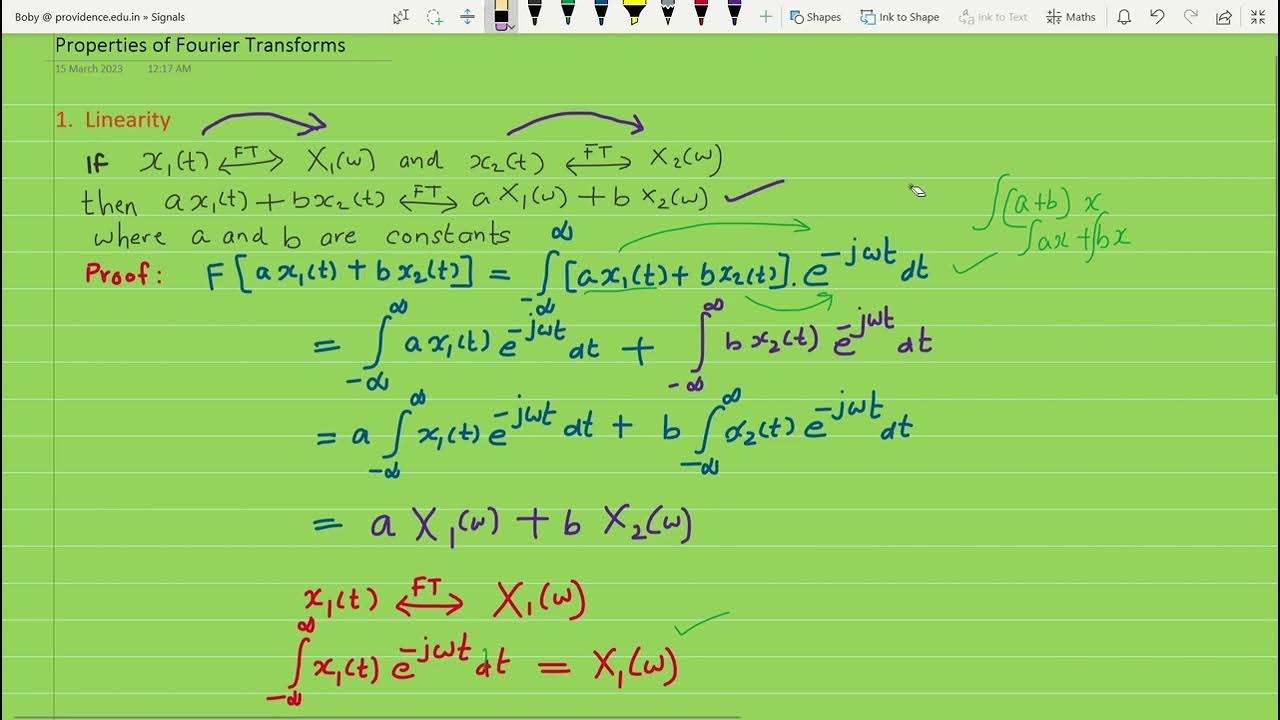 Boby @ providence.edu.in » Signals
Shapes Ink to Shape Ink to Text Maths
Properties of Fourier Transforms
15 March 2023 12:17 AM
1. Linearity
If x₁(t) ⟷FT X₁(ω) and x₂(t) ⟷FT X₂(ω)
then a x₁(t) + b x₂(t) ⟷FT a X₁(ω) + b X₂(ω) ✓
where a and b are constants
∫(a+b) x
∫ax + ∫bx
Proof: F[a x₁(t) + b x₂(t)] = ∫_{-∞}^{∞} [a x₁(t) + b x₂(t)] . e^{-jωt} dt ✓
= ∫_{-∞}^{∞} a x₁(t) e^{-jωt} dt + ∫_{-∞}^{∞} b x₂(t) e^{-jωt} dt
= a ∫_{-∞}^{∞} x₁(t) e^{-jωt} dt + b ∫_{-∞}^{∞} x₂(t) e^{-jωt} dt
= a X₁(ω) + b X₂(ω)
x₁(t) ⟷FT X₁(ω)
∫_{-∞}^{∞} x₁(t) e^{-jωt} dt = X₁(ω) ✓